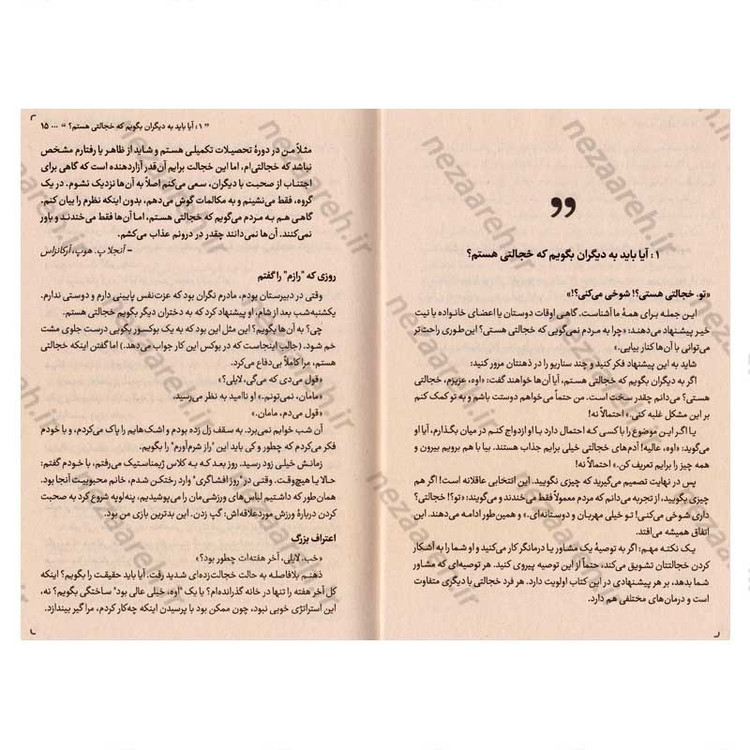 ”
۱: آیا باید به دیگران بگویم که خجالتی هستم؟
«تو. خجالتی هستی؟! شوخی می‌کنی؟!»
این جمله برای همهٔ ما آشناست. گاهی اوقات دوستان یا اعضای خانواده با نیت
خیر پیشنهاد می‌دهند: «چرا به مردم نمی‌گویی که خجالتی هستی؟ این‌طوری راحت‌تر
می‌توانی با آن‌ها کنار بیایی.»
شاید به این پیشنهاد فکر کنید و چند سناریو را در ذهنتان مرور کنید:
اگر به دیگران بگویم که خجالتی هستم، آیا آن‌ها خواهند گفت: «اوه، عزیزم، خجالتی
هستی؟ می‌دانم چقدر سخت است. من حتماً می‌خواهم دوستت باشم و به تو کمک کنم
بر این مشکل غلبه کنی.» احتمالاً نه!
یا اگر این موضوع را با کسی که احتمال دارد با او ازدواج کنم در میان بگذارم، آیا او
می‌گوید: «اوه، عالیه! آدم‌های خجالتی خیلی برایم جذاب هستند. بیا با هم برویم بیرون و
همه چیز را برایم تعریف کن.» احتمالاً نه!
پس در نهایت تصمیم می‌گیرید که چیزی نگویید. این انتخابی عاقلانه است! اگر هم
چیزی بگویید، از تجربه می‌دانم که مردم معمولاً فقط می‌خندند و می‌گویند: «تو؟! خجالتی؟
داری شوخی می‌کنی! تو خیلی مهربان و دوستانه‌ای.» و همین‌طور ادامه می‌دهند. این
اتفاق همیشه می‌افتد.
یک نکتهٔ مهم: اگر به توصیهٔ یک مشاور یا درمانگر کار می‌کنید و او شما را به آشکار
کردن خجالتتان تشویق می‌کند، حتماً از این توصیه پیروی کنید. هر توصیه‌ای که مشاور
شما بدهد، بر هر پیشنهادی در این کتاب اولویت دارد. هر فرد خجالتی با دیگری متفاوت
است و درمان‌های مختلفی هم دارد.
” ۱: آیا باید به دیگران بگویم که خجالتی هستم؟ “ ... ۱۵
مثلاً من در دورهٔ تحصیلات تکمیلی هستم و شاید از ظاهر یا رفتارم مشخص
نباشد که خجالتی‌ام، اما این خجالت برایم آن‌قدر آزاردهنده است که گاهی برای
اجتناب از صحبت با دیگران، سعی می‌کنم اصلاً به آن‌ها نزدیک نشوم. در یک
گروه، فقط می‌نشینم و به مکالمات گوش می‌دهم، بدون اینکه نظرم را بیان کنم.
گاهی هم به مردم می‌گویم که خجالتی هستم، اما آن‌ها فقط می‌خندند و باور
نمی‌کنند. آن‌ها نمی‌دانند چقدر در درونم عذاب می‌کشم.
- آنجلا پ. هوپ، آرکانزاس
روزی که "رازم" را گفتم
وقتی در دبیرستان بودم، مادرم نگران بود که عزت‌نفس پایینی دارم و دوستی ندارم.
یکشنبه‌شب بعد از شام، او پیشنهاد کرد که به دختران دیگر بگویم خجالتی هستم.
چی؟ به آن‌ها بگویم؟! این مثل این بود که به یک بوکسور بگویی درست جلوی مشت
خم شود. (جالب اینجاست که در بوکس این کار جواب می‌دهد.) اما گفتن اینکه خجالتی
هستم، مرا کاملاً بی‌دفاع می‌کرد.
«قول می‌دی که می‌گی، لایلی؟»
«مامان، نمی‌تونم.» او ناامید به نظر می‌رسید.
«قول می‌دم، مامان.»
آن شب خوابم نمی‌برد. به سقف زل زده بودم و اشک‌هایم را پاک می‌کردم، و با خودم
فکر می‌کردم که چطور و کی باید این "راز شرم‌آورم" را بگویم.
زمانش خیلی زود رسید. روز بعد که به کلاس ژیمناستیک می‌رفتم، با خودم گفتم:
حالا یا هیچ‌وقت. وقتی در "روز افشاگری" وارد رختکن شدم، خانم محبوبیت آنجا بود.
همان‌طور که داشتیم لباس‌های ورزشی‌مان را می‌پوشیدیم، پنه‌لوپه شروع کرد به صحبت
کردن دربارهٔ ورزش موردعلاقه‌اش: گپ زدن. این بدترین بازی من بود.
اعتراف بزرگ
«خب، لایلی، آخر هفته‌ات چطور بود؟»
ذهنم بلافاصله به حالت خجالت‌زده‌ای شدید رفت. آیا باید حقیقت را بگویم؟ اینکه
کل آخر هفته را تنها در خانه گذرانده‌ام؟ یا یک "اوه، خیلی عالی بود" ساختگی بگویم؟ نه،
این استراتژی خوبی نبود، چون ممکن بود با پرسیدن اینکه چه‌کار کردم، مرا گیر بیندازد.
nezaareh.ir